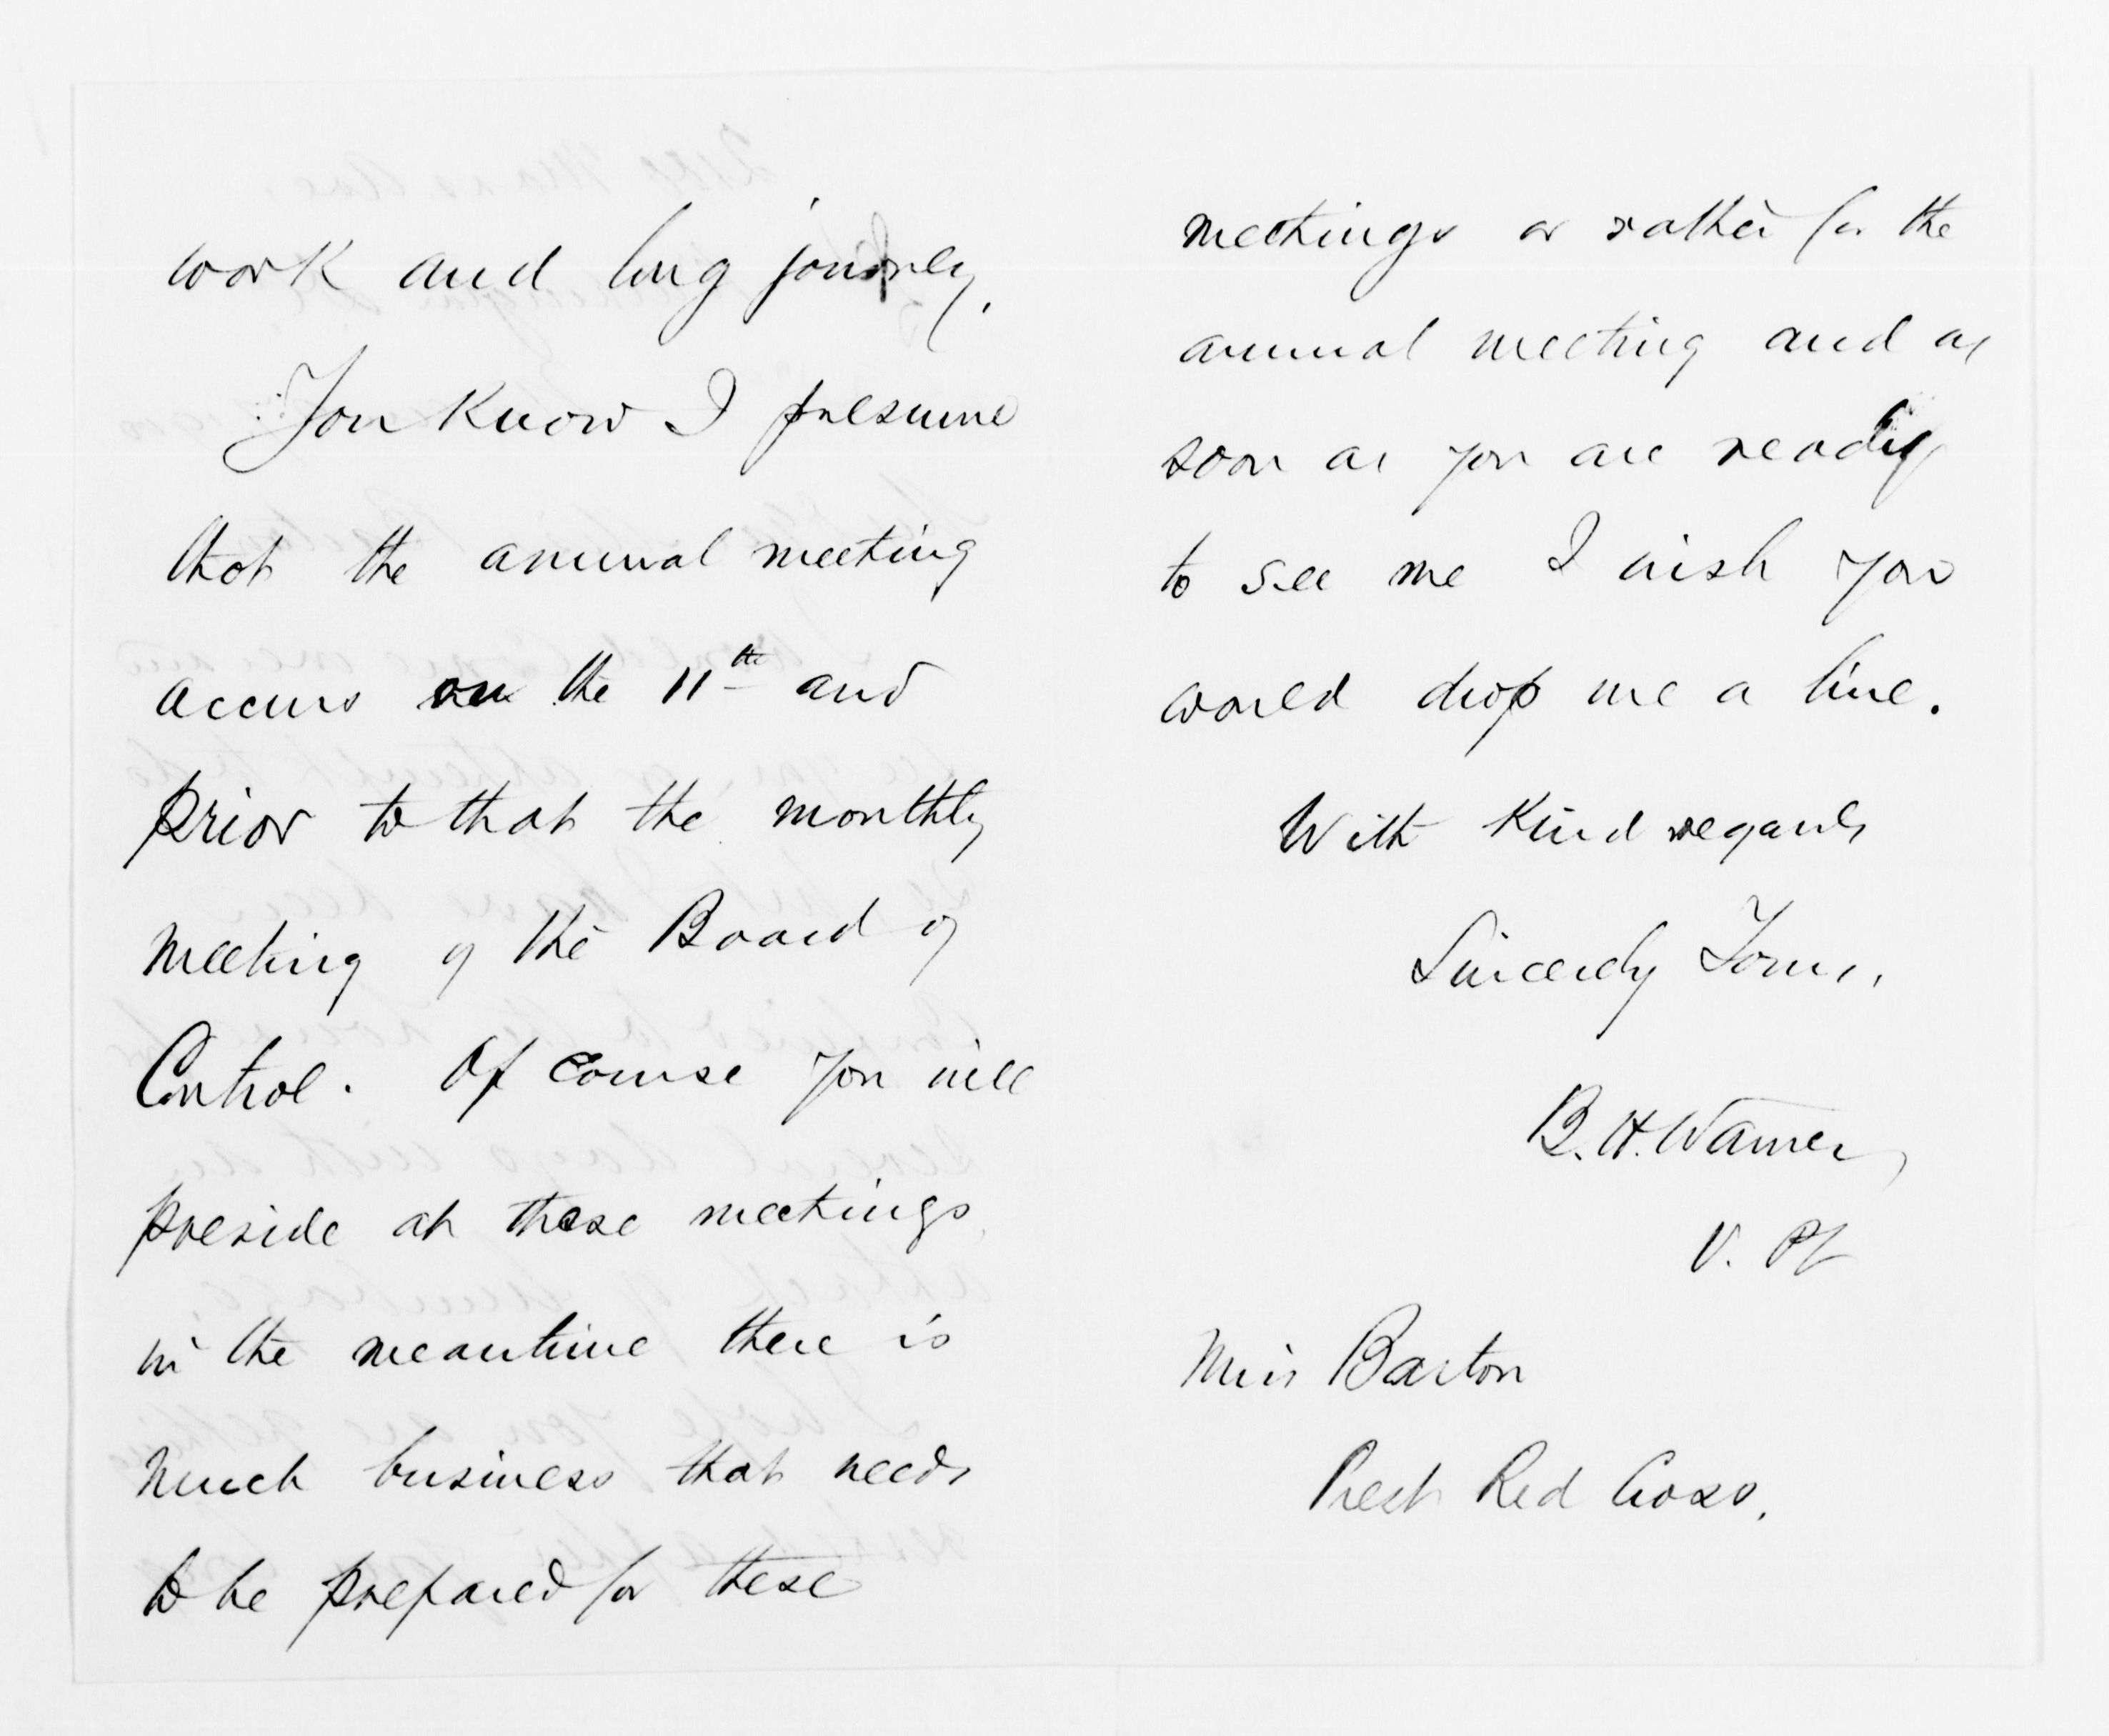 work and long journey.
You know I presume
that the annual meeting
occurs on the 11th and
prior to that the monthly
meeting of the Board of
Control. Of course you will
preside at these meetings
in the meantime there is
much business that needs
to be prepared for these
meetings or rather for the
annual meeting and as
soon as you are ready
to see me I wish you
would drop me a line.
With kind regards
Sincerely Yours,
B. H. Warner
V. Pt
Miss Barton
Prest Red Cross.